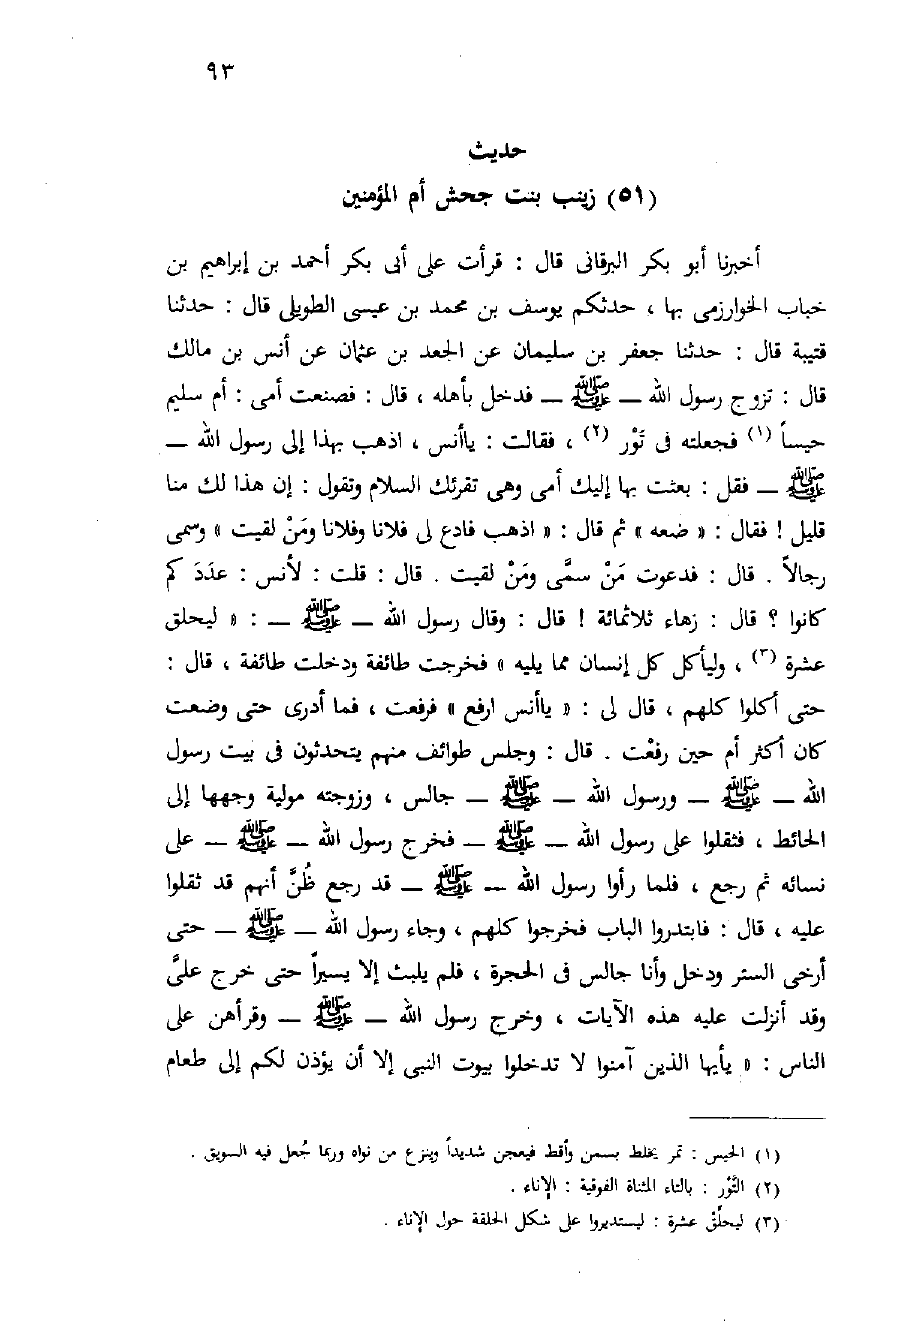 ٩٣
حديث
(٥١) زينب بنت جحش أم المؤمنين
أخبرنا أبو بكر البرقانى قال : قرأت على أبى بكر أحمد بن إبراهيم بن
خباب الخوارزمى بها ، حدثكم يوسف بن محمد بن عيسى الطويلى قال : حدثنا
قتيبة قال : حدثنا جعفر بن سليمان عن الجعد بن عثمان عن أنس بن مالك
قال : تزوج رسول الله — ﷺ — فدخل بأهله ، قال : فصنعت أمى : أم سليم
حيساً (١) فجعلته فى تَوْر (٢) ، فقالت : ياأنس ، اذهب بهذا إلى رسول الله —
ﷺ — فقل : بعثت بها إليك أمى وهى تقرئك السلام وتقول : إن هذا لك منا
قليل ! فقال : « ضعه » ثم قال : « اذهب فادع لى فلانا وفلانا ومَنْ لقيت » وسمى
رجالاً . قال : فدعوت مَنْ سمَّى ومَنْ لقيت . قال : قلت : لأنس : عدَدَ كم
كانوا ؟ قال : زهاء ثلاثمائة ! قال : وقال رسول الله — ﷺ — : « ليحلق
عشرة (٣) ، وليأكل كل إنسان مما يليه » فخرجت طائفة ودخلت طائفة ، قال :
حتى أكلوا كلهم ، قال لى : « ياأنس ارفع » فرفعت ، فما أدرى حتى وضعت
كان أكثر أم حين رفعْت . قال : وجلس طوائف منهم يتحدثون فى بيت رسول
الله — ﷺ — ورسول الله — ﷺ — جالس ، وزوجته مولية وجهها إلى
الحائط ، فثقلوا على رسول الله — ﷺ — فخرج رسول الله — ﷺ — على
نسائه ثم رجع ، فلما رأوا رسول الله — ﷺ — قد رجع ظُنَّ أنهم قد ثقلوا
عليه ، قال : فابتدروا الباب فخرجوا كلهم ، وجاء رسول الله — ﷺ — حتى
أرخى الستر ودخل وأنا جالس فى الحجرة ، فلم يلبث إلا يسيراً حتى خرج علىَّ
وقد أنزلت عليه هذه الآيات ، وخرج رسول الله — ﷺ — وقرأهن على
الناس : « يأيها الذين آمنوا لا تدخلوا بيوت النبى إلا أن يؤذن لكم إلى طعام
(١) الحيس : تمر يخلط بسمن وأقط فيعجن شديداً وينزع من نواه وربما جُعل فيه السويق .
(٢) التَّوْر : بالتاء المثناة الفوقية : الإناء .
(٣) ليحلِّق عشرة : ليستديروا على شكل الحلقة حول الإناء .